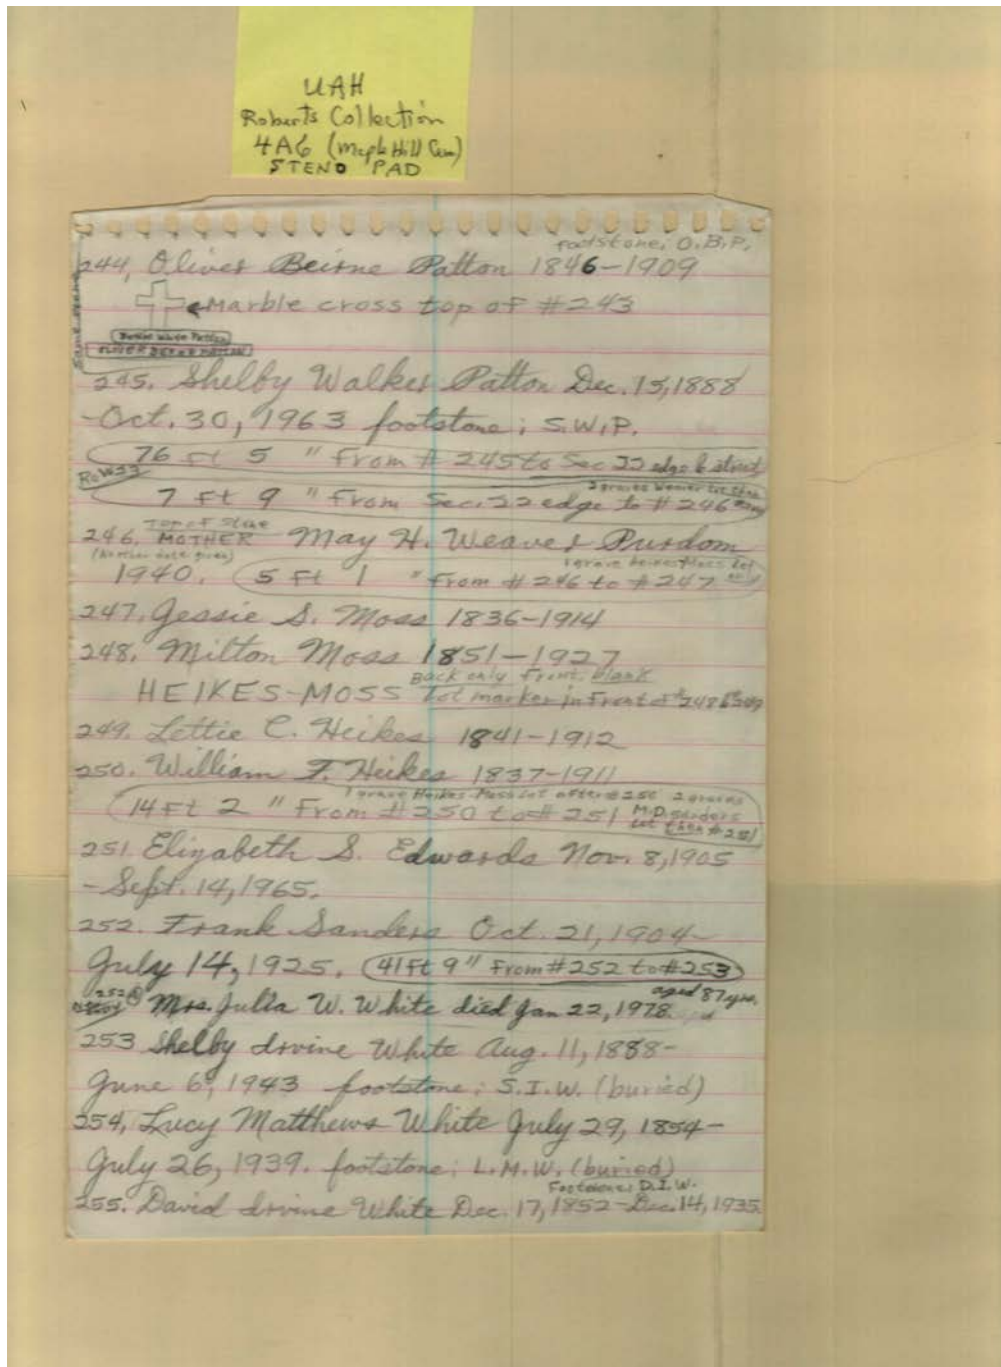 UAH
Roberts Collection
4A6 (Maple Hill Cem)
STENO PAD
footstone; O.B.P.
244, Oliver Beirne Patton 1846-1909
←Marble cross top of #243
245. Shelby Walker Patton Dec. 15, 1888
-Oct. 30, 1963 footstone; S.W.P.
76 ft 5 " From # 245 to Sec 22 edge & street
Row 33
2 graves Weaver Lot then
7 Ft 9 " From Sec. 22 edge to # 246
Top of Stone
246. MOTHER May H. Weaver Purdom
(No other date given) 1 grave Heikes-Moss Lot only
1940. 5 Ft 1 " From # 246 to # 247
247. Jessie S. Moss 1836-1914
248. Milton Moss 1851-1927
Back only Front, blank
HEIKES-MOSS Lot marker in Front of #248 & 249
249. Lettie C. Heikes 1841-1912
250. William F. Heikes 1837-1911
1 grave Heikes-Moss Lot after #250 2 graves
14 Ft 2 " From #250 to # 251 M.D. Sanders
Lot then #251
251 Elizabeth S. Edwards Nov. 8, 1905
-Sept. 14, 1965.
252. Frank Sanders Oct. 21, 1904-
July 14, 1925. 41 Ft 9 " From #252 to #253
aged 87 yrs.
252 Mrs. Julia W. White died Jan 22, 1978
253 Shelby Irvine White Aug. 11, 1888-
June 6, 1943 footstone; S.I.W. (buried)
254, Lucy Matthews White July 29, 1854-
July 26, 1939. footstone; L.M.W. (buried)
Footstone; D.I.W.
255. David Irvine White Dec. 17, 1852-Dec. 14, 1935.